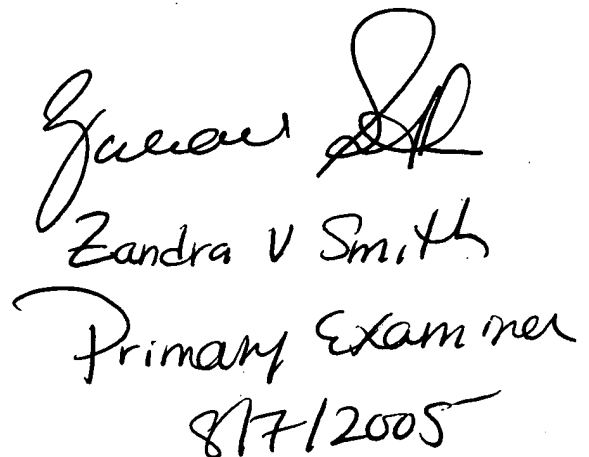 Zandra V Smith
Primary Examiner
8/7/2005